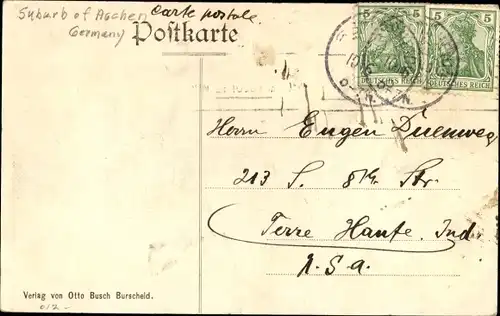 Suburb of Aachen
Germany
Carte postale
Postkarte
5 5
DEUTSCHES REICH
5 5
DEUTSCHES REICH
Herrn Eugen Duenweg
213 S. 8th Str
Terre Haute, Ind.
U.S.A.
Verlag von Otto Busch Burscheid.